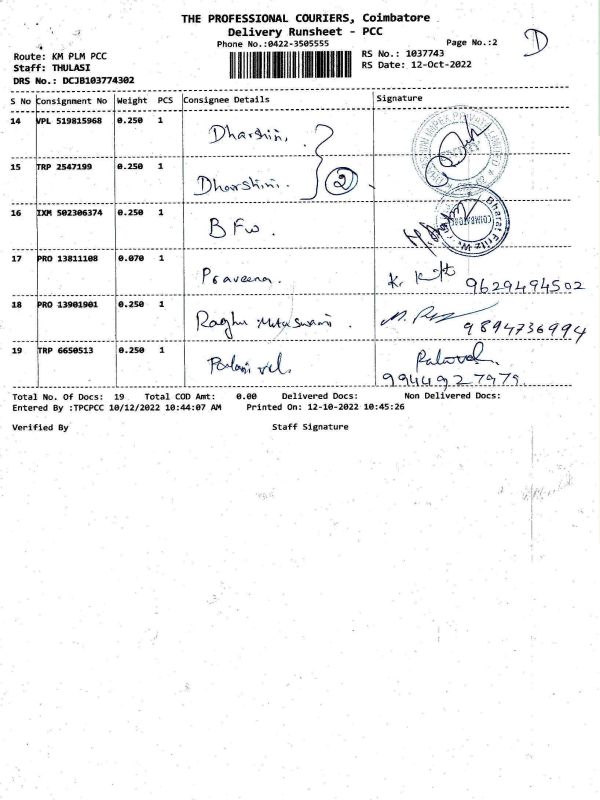 THE PROFESSIONAL COURIERS, Coimbatore
Delivery Runsheet - PCC
Phone No.:0422-3505555
Page No.:2
D
Route: KM PLM PCC
RS No.: 1037743
Staff: THULASI
RS Date: 12-Oct-2022
DRS No.: DCJB103774302
S No Consignment No Weight PCS Consignee Details Signature
14 VPL 519815968 0.250 1 Dharshini.
15 TRP 2547199 0.250 1 Dharshini. 2
16 IXM 502306374 0.250 1 BFW.
17 PRO 13811108 0.070 1 Praveena. 9629494502
18 PRO 13901901 0.250 1 Raghu Muthuswami. 9894736994
19 TRP 6650513 0.250 1 Palani vel.
9944927979.
Total No. Of Docs: 19 Total COD Amt: 0.00 Delivered Docs: Non Delivered Docs:
Entered By :TPCPCC 10/12/2022 10:44:07 AM Printed On: 12-10-2022 10:45:26
Verified By Staff Signature